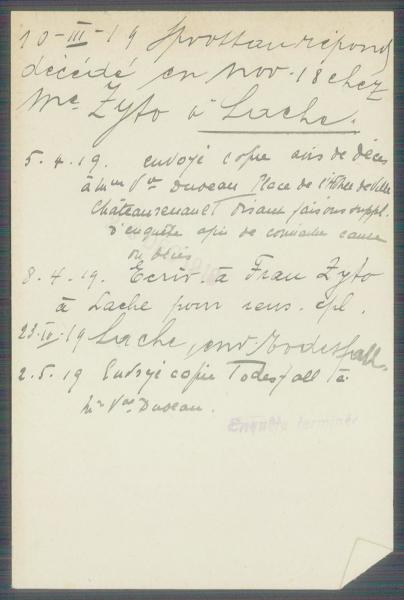 10-III-19 Sprottau répond
décédé en Nov. 18 chez
Me Zyto à Lache.
5.4.19. envoyé copie avis de décès
à Mme Vve Duveau Place de l'Hôtel de Ville
Châteaurenault disant faisons suppl.
d'enquête afin de connaitre cause
du décès
8.4.19. Ecrit à Frau Zyto
à Lache pour rens. cpl.
23-IV-19 Lache, env. Todesfall.
2.5.19 Envoyé copie Todesfall à
Me Vve Duveau.
Enquête terminée